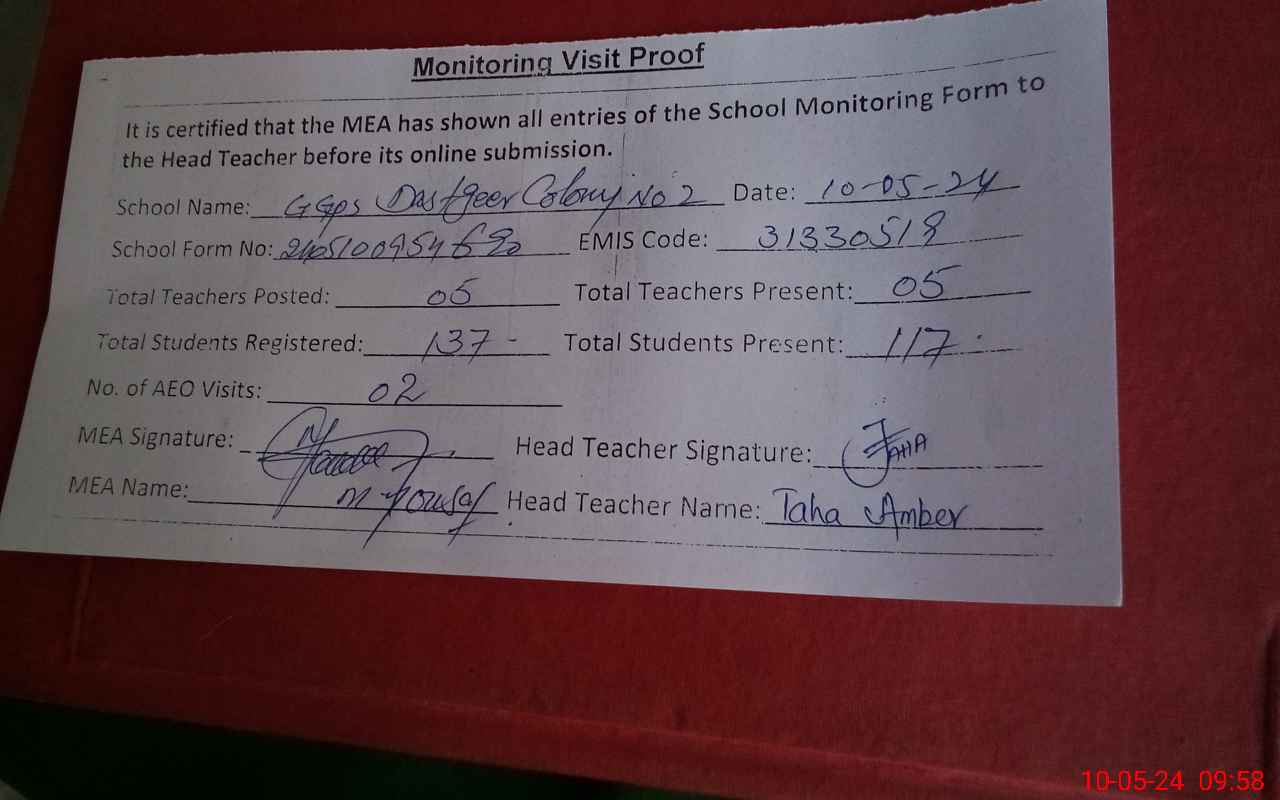 Monitoring Visit Proof
It is certified that the MEA has shown all entries of the School Monitoring Form to
the Head Teacher before its online submission.
School Name: GGPS Dastgeer Colony No 2 Date: 10-05-24
School Form No: EMIS Code: 31330518
Total Teachers Posted: 05 Total Teachers Present: 05
Total Students Registered: 137 Total Students Present: 117
No. of AEO Visits: 02
MEA Signature: Head Teacher Signature: TAHA
MEA Name: M Yousaf Head Teacher Name: Taha Amber
10-05-24 09:58